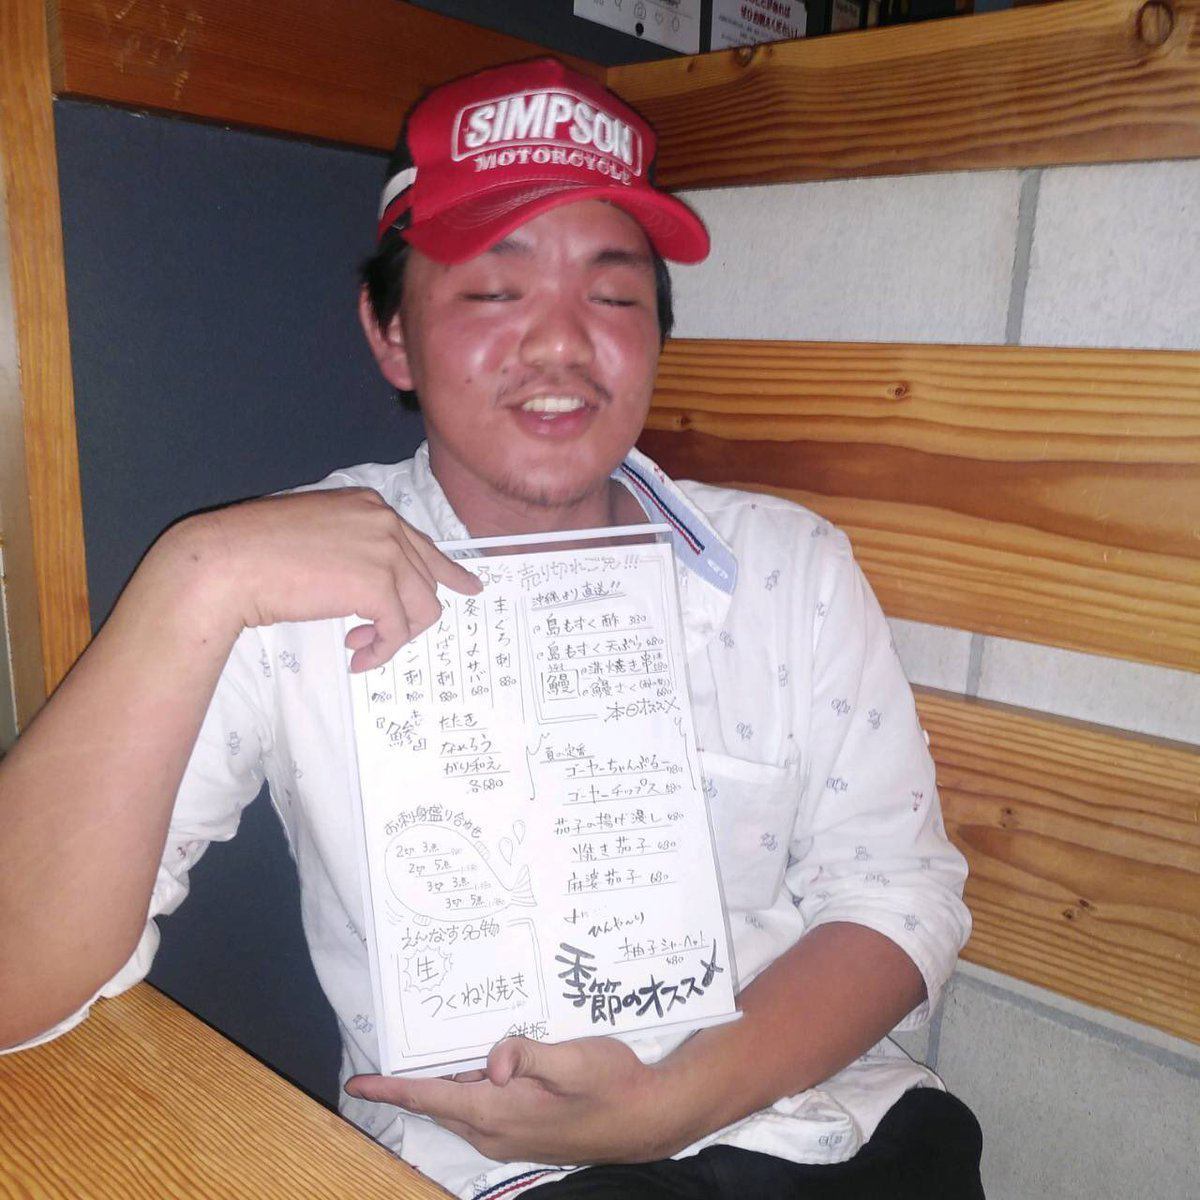 SIMPSON
MOTORCYCLE
売り切れご免!!!
まぐろ刺
880
炙り〆サバ
680
かんぱち刺
880
ン刺
780
780
沖縄より直送!!
島もずく酢 330
島もずく天ぷら 480
鰻
蒲焼き串
680
鰻ざく
680
本日オススメ
『鯵』
たたき
なめろう
がり和え
各680
夏の定番
ゴーヤーちゃんぷるー 780
ゴーヤーチップス 480
茄子の揚げ浸し 480
焼き茄子 480
麻婆茄子 680
お刺身盛り合わせ
2切 3点
2切 5点
3切 3点
3切 5点
えんなす名物
生
つくね焼き
鉄板
ひんや〜り
柚子シャーベット
480
季節のオススメ